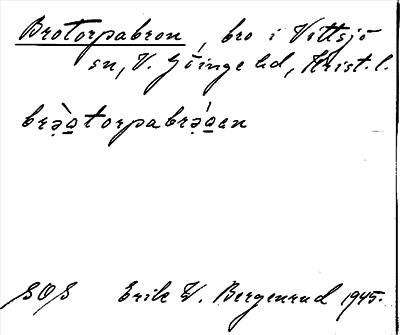 Brotorpabron, bro i Vittsjö
sn, V. Göinge hd, Krist. l.
brə̀o̲torpabrə́o̲en
SOS Erik W. Bergenrud 1945.